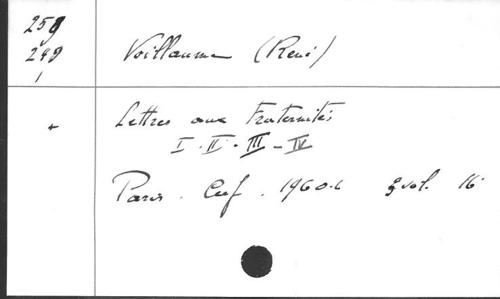 259
249
1
Voillaume (René)
+
Lettres aux Fraternités
I - II - III - IV
Paris. Cerf. 1960-6 vol. 16